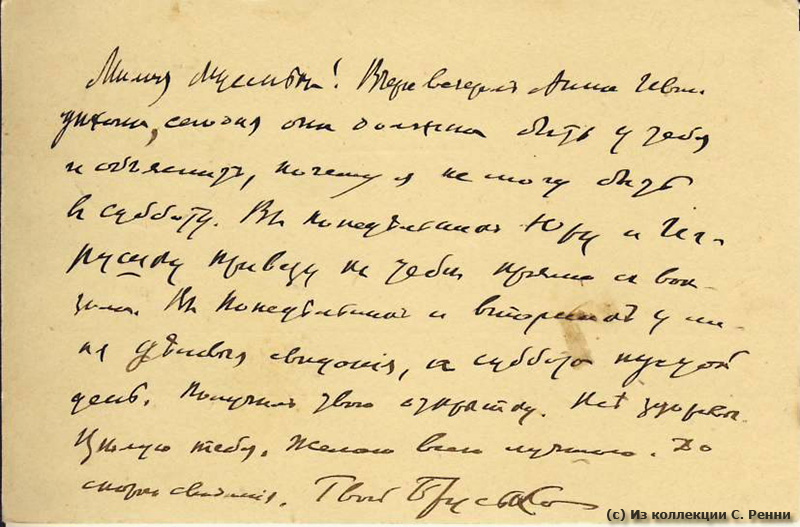 Милая Мусинька! Вчера вечеромъ Анна Иван
уихала, сегодня она должна быть у тебя
и объяснитъ, почему я не могу быть
въ субботу. Въ понедѣльникъ Юру и
привезу къ тебѣ прямо съ вок-
зала. Въ понедѣльникъ и вторникъ у ме-
ня дѣловыя свиданія, а суббота пустой
день. Получилъ твою открытку. Всѣ здоровы.
Цѣлую тебя. Желаю всего лучшаго. До
скораго свиданія. Твой
(c) Из коллекции С. Ренни